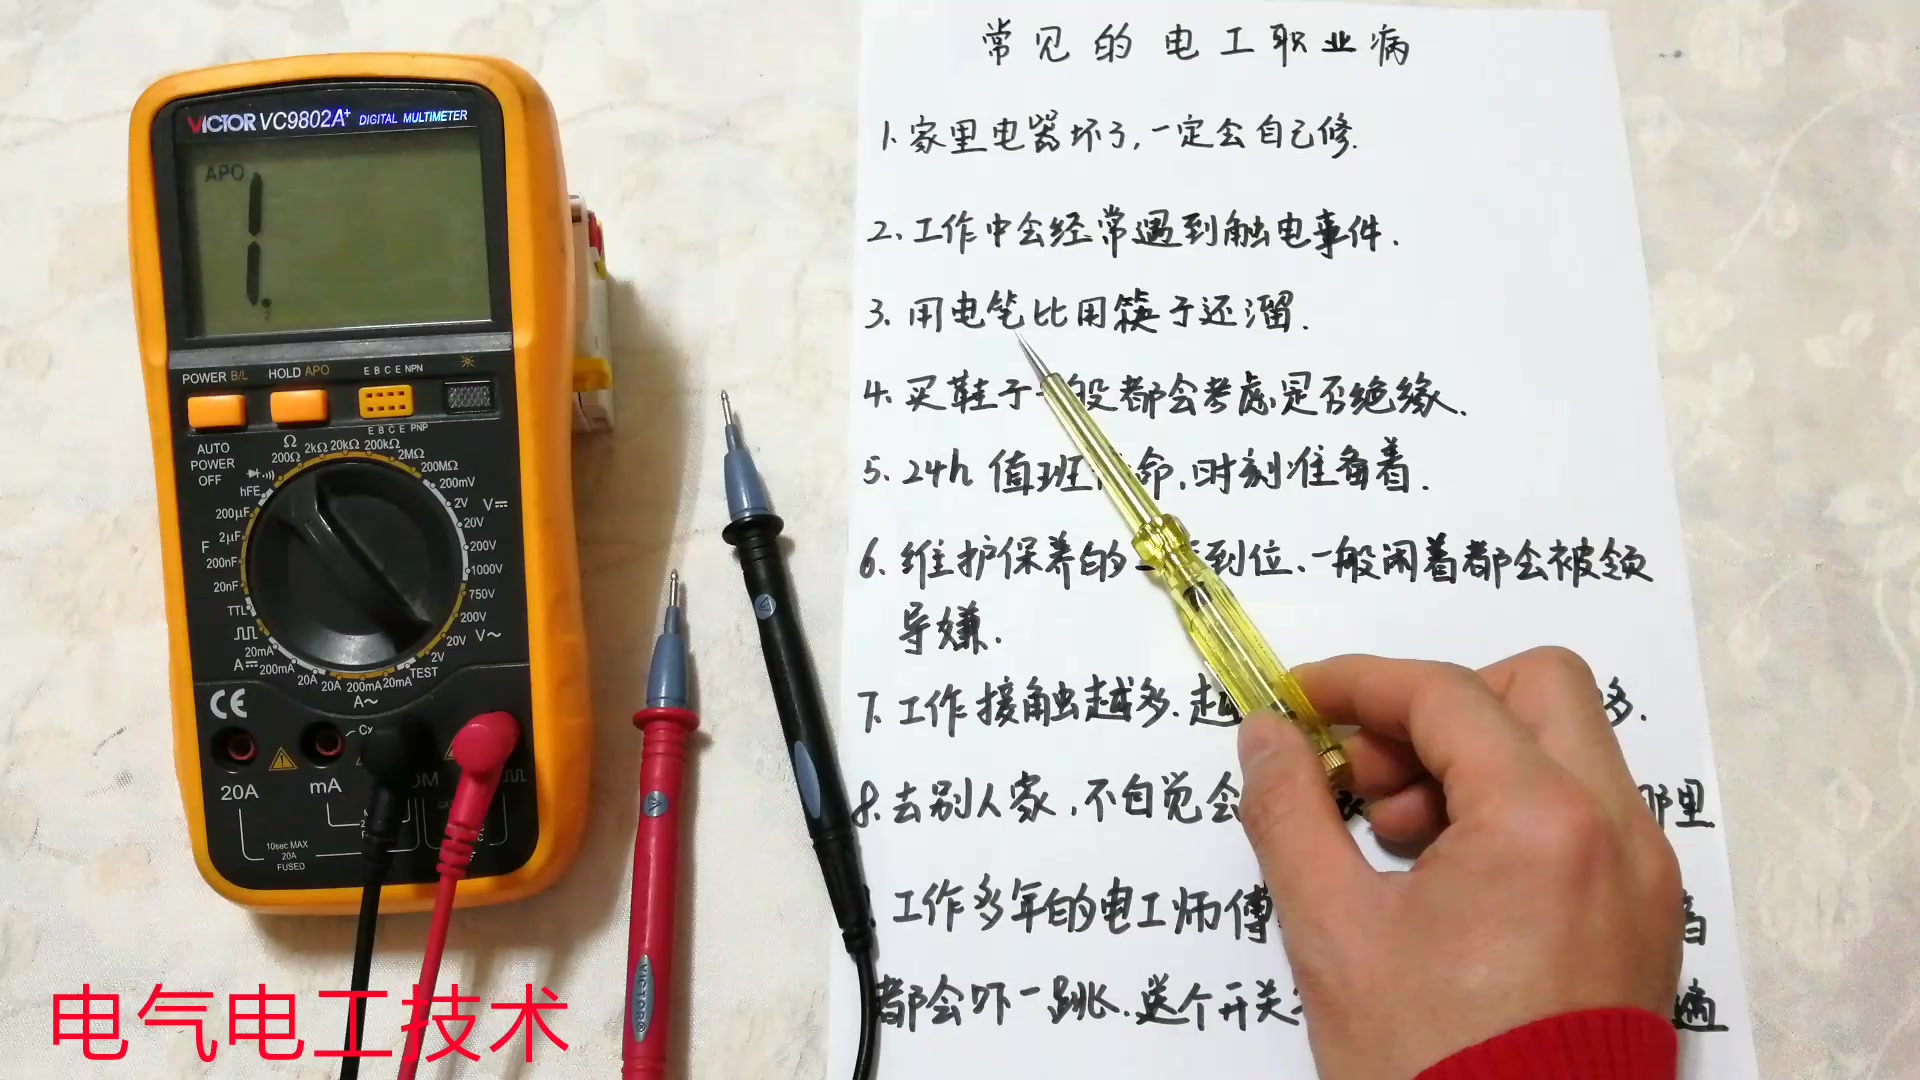 常见的电工职业病
1.家里电器坏了,一定会自己修.
2.工作中会经常遇到触电事件.
3.用电笔比用筷子还溜.
4.买鞋子一般都会考虑是否绝缘.
5.24h 值班 命,时刻准备着.
6.维护保养的 到位,一般闲着都会被领
导嫌.
7.工作接触越多.越 多.
8.去别人家,不自觉会 那里
工作多年的电工师傅 音
都会吓一跳.送个开关 遍
VICTOR VC9802A+ DIGITAL MULTIMETER
APO
1.
POWER B/L HOLD APO E B C E NPN
E B C E PNP
AUTO
POWER
OFF
Ω
200Ω 2kΩ 20kΩ 200kΩ 2MΩ 200MΩ
hFE 200mV
200μF 2V V⎓
2μF 20V
F 200V
200nF 1000V
20nF 750V
TTL 200V
20V V~
20mA 2V
A⎓ 200mA 20A 20A 200mA 20mA TEST
A~
CE
Cx
20A mA
10sec MAX
20A
FUSED
VICTOR
电气电工技术